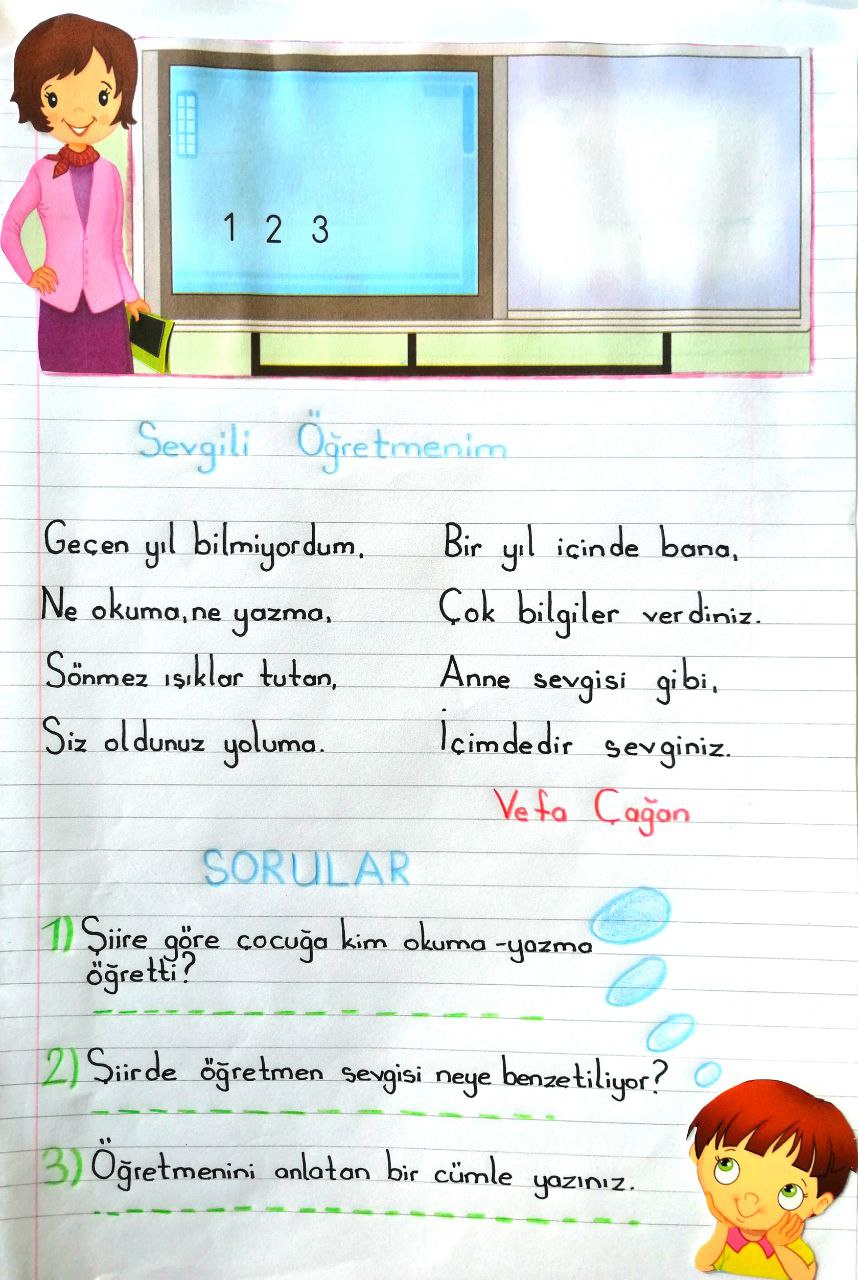 1 2 3
Sevgili Öğretmenim
Geçen yıl bilmiyordum,
Ne okuma, ne yazma,
Sönmez ışıklar tutan,
Siz oldunuz yoluma.
Bir yıl içinde bana,
Çok bilgiler verdiniz.
Anne sevgisi gibi,
İçimdedir sevginiz.
Vefa Çağan
SORULAR
1) Şiire göre çocuğa kim okuma-yazma
öğretti?
2) Şiirde öğretmen sevgisi neye benzetiliyor?
3) Öğretmenini anlatan bir cümle yazınız.